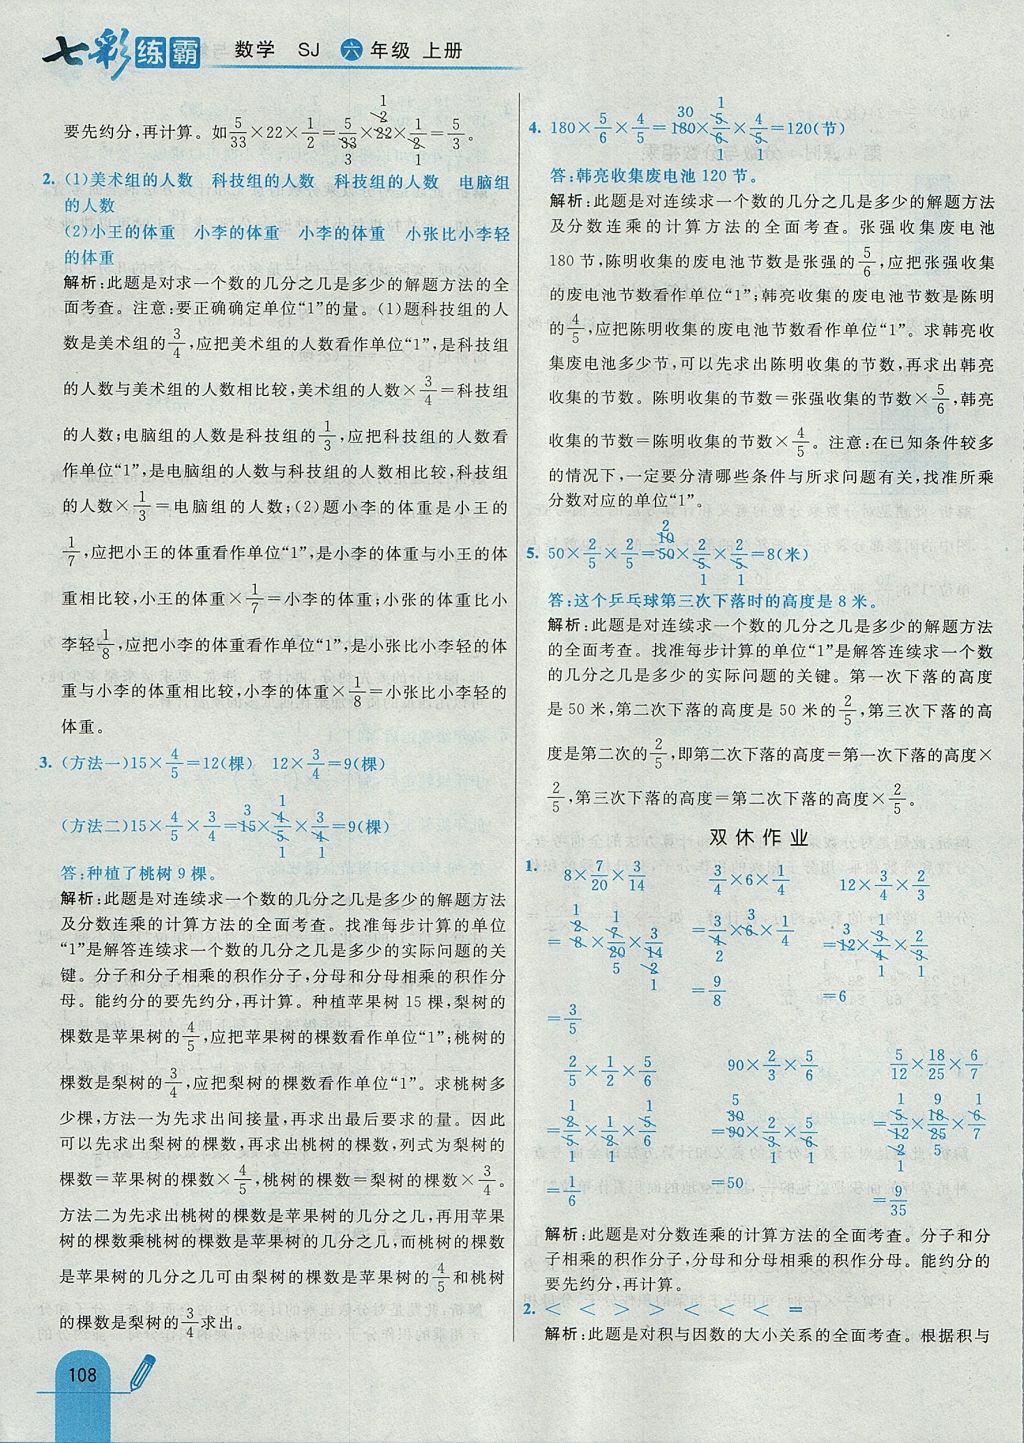 七彩练霸 数学 SJ 六年级 上册
要先约分,再计算。如5/33×22×1/2=5/33×22×1/2=5/3。
2. (1)美术组的人数 科技组的人数 科技组的人数 电脑组
的人数
(2)小王的体重 小李的体重 小李的体重 小张比小李轻
的体重
解析:此题是对求一个数的几分之几是多少的解题方法的全
面考查。注意:要正确确定单位“1”的量。(1)题科技组的人
数是美术组的3/4,应把美术组的人数看作单位“1”,是科技组
的人数与美术组的人数相比较,美术组的人数×3/4=科技组
的人数;电脑组的人数是科技组的1/3,应把科技组的人数看
作单位“1”,是电脑组的人数与科技组的人数相比较,科技组
的人数×1/3=电脑组的人数;(2)题小李的体重是小王的
1/7,应把小王的体重看作单位“1”,是小李的体重与小王的体
重相比较,小王的体重×1/7=小李的体重;小张的体重比小
李轻1/8,应把小李的体重看作单位“1”,是小张比小李轻的体
重与小李的体重相比较,小李的体重×1/8=小张比小李轻的
体重。
3. (方法一)15×4/5=12(棵) 12×3/4=9(棵)
(方法二)15×4/5×3/4=15×4/5×3/4=9(棵)
答:种植了桃树9棵。
解析:此题是对连续求一个数的几分之几是多少的解题方法
及分数连乘的计算方法的全面考查。找准每步计算的单位
“1”是解答连续求一个数的几分之几是多少的实际问题的关
键。分子和分子相乘的积作分子,分母和分母相乘的积作分
母。能约分的要先约分,再计算。种植苹果树15棵,梨树的
棵数是苹果树的4/5,应把苹果树的棵数看作单位“1”;桃树的
棵数是梨树的3/4,应把梨树的棵数看作单位“1”。求桃树多
少棵,方法一为先求出间接量,再求出最后要求的量。因此
可以先求出梨树的棵数,再求出桃树的棵数,列式为梨树的
棵数=苹果树的棵数×4/5,桃树的棵数=梨树的棵数×3/4。
方法二为先求出桃树的棵数是苹果树的几分之几,再用苹果树
的棵数乘桃树的棵数是苹果树的几分之几;而桃树的棵数
是苹果树的几分之几可由梨树的棵数是苹果树的4/5和桃树
的棵数是梨树的3/4求出。
108
4. 180×5/6×4/5=180×5/6×4/5=120(节)
答:韩亮收集废电池120节。
解析:此题是对连续求一个数的几分之几是多少的解题方法
及分数连乘的计算方法的全面考查。张强收集废电池
180节,陈明收集的废电池节数是张强的5/6,应把张强收集
的废电池节数看作单位“1”;韩亮收集的废电池节数是陈明
的4/5,应把陈明收集的废电池节数看作单位“1”。求韩亮收
集废电池多少节,可以先求出陈明收集的节数,再求出韩亮
收集的节数。陈明收集的节数=张强收集的节数×5/6,韩亮
收集的节数=陈明收集的节数×4/5。注意:在已知条件较多
的情况下,一定要分清哪些条件与所求问题有关,找准所乘
分数对应的单位“1”。
5. 50×2/5×2/5=50×2/5×2/5=8(米)
答:这个乒乓球第三次下落时的高度是8米。
解析:此题是对连续求一个数的几分之几是多少的解题方法
的全面考查。找准每步计算的单位“1”是解答连续求一个数
的几分之几是多少的实际问题的关键。第一次下落的高度
是50米,第二次下落的高度是50米的2/5,第三次下落的高
度是第二次的2/5,即第二次下落的高度=第一次下落的高度×
2/5,第三次下落的高度=第二次下落的高度×2/5。
双休作业
1. 8×7/20×3/14 3/4×6×1/4 12×3/4×2/3
=8×7/20×3/14 =3/4×6×1/4 =12×3/4×2/3
=3/5 =9/8 =6
2/5×1/2×5/6 90×2/3×5/6 5/12×18/25×6/7
=2/5×1/2×5/6 =90×2/3×5/6 =5/12×18/25×6/7
=1/6 =50 =9/35
解析:此题是对分数连乘的计算方法的全面考查。分子和分
子相乘的积作分子,分母和分母相乘的积作分母。能约分的
要先约分,再计算。
2. < < > > < < < =
解析:此题是对积与因数的大小关系的全面考查。根据积与